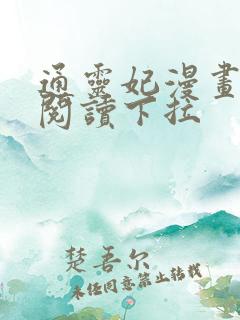 通靈妃漫畫
閱讀下拉
楚吾尔
未经同意禁止转载